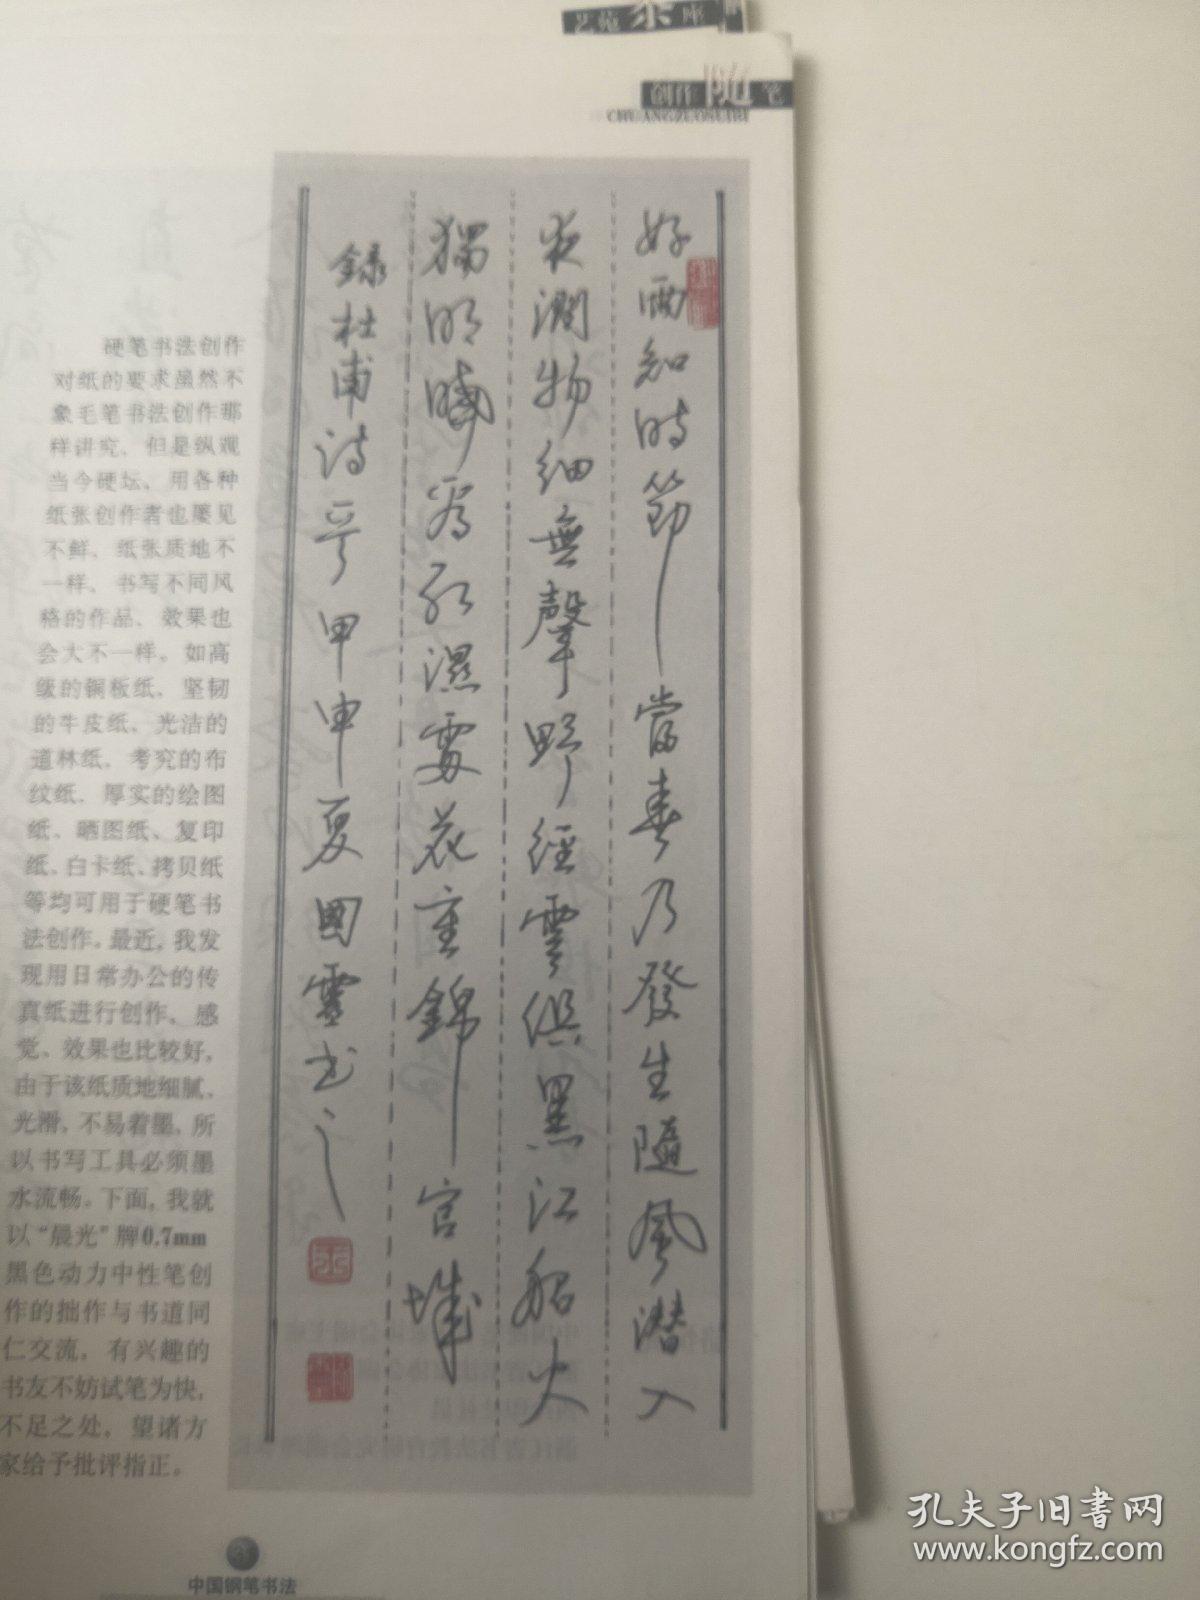 艺苑茶座
创作随笔
CHUANGZUOSUIBI
好雨知時節當春乃發生隨風潜入
夜潤物細無聲野經雲俱黑江船火
獨明曉看紅濕處花重錦官城
録杜甫詩一首甲申夏國靈书之
硬笔书法创作
对纸的要求虽然不
象毛笔书法创作那
样讲究，但是纵观
当今硬坛，用各种
纸张创作者也屡见
不鲜，纸张质地不
一样，书写不同风
格的作品，效果也
会大不一样。如高
级的铜板纸、坚韧
的牛皮纸、光洁的
道林纸、考究的布
纹纸、厚实的绘图
纸、晒图纸、复印
纸、白卡纸、拷贝纸
等均可用于硬笔书
法创作。最近，我发
现用日常办公的传
真纸进行创作，感
觉、效果也比较好，
由于该纸质地细腻、
光滑，不易着墨，所
以书写工具必须墨
水流畅。下面，我就
以“晨光”牌0.7mm
黑色动力中性笔创
作的拙作与书道同
仁交流，有兴趣的
书友不妨试笔为快，
不足之处，望诸方
家给予批评指正。
中国钢笔书法
孔夫子旧书网
www.kongfz.com